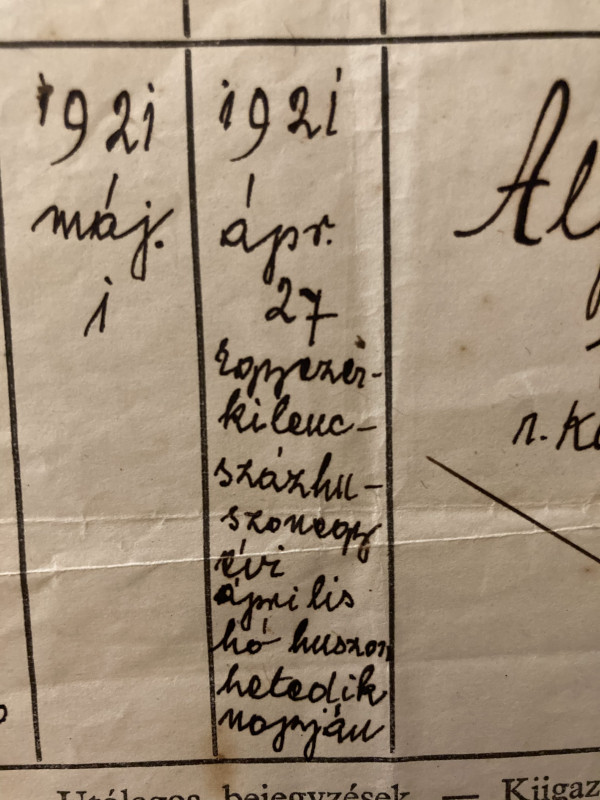 1921
máj.
1
1921
ápr.
27
Egyezer-
kilenc-
százhu-
szonegy
évi
április
hó huszon
hetedik
napján
r. K
Utólagos bejegyzések — Kiigaz